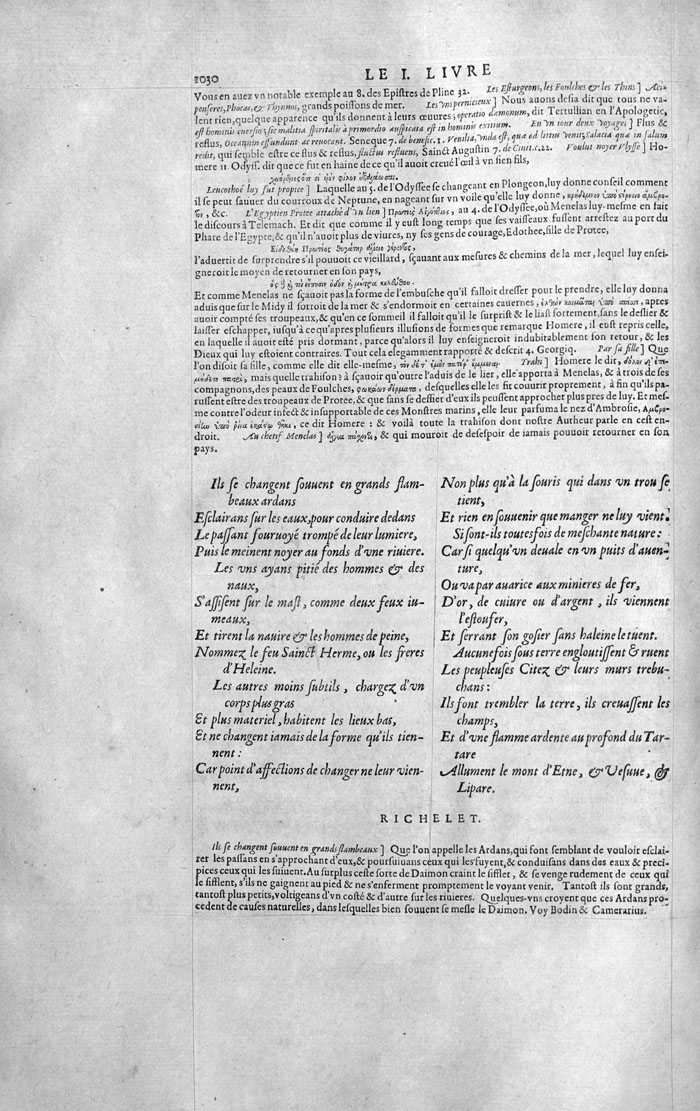 1030
LE I. LIVRE
Vous en auez vn notable exemple au 8. des Epistres de Pline 32. Les Esturgeons, les Foulches & les Thins] Aci-
penseres, Phocas, & Thynnos, grands poissons de mer. Les vns pernicieux] Nous auons desia dit que tous ne va-
lent rien, quelque apparence qu'ils donnent à leurs œuures; operatio dæmonum, dit Tertullian en l'Apologetic,
est hominis euersio; sic malitia spiritalis à primordio auspicata est in hominis exitium. En vn tour deux voyages] Flus &
reflus, Oceanum effundunt ac reuocant. Seneque 7. de benefic. 1. Venilia, vnda est, quæ ad littus venit, salacia quæ in salum
redit, qui semble estre ce flus & reflus, fluctus refluens, Sainct Augustin 7. de Ciuit. c. 22. Voulut noyer Vlysse] Ho-
mere 11 Odyss. dit que ce fut en haine de ce qu'il auoit creué l'œil à vn sien fils,
Leucothoé luy fut propice] Laquelle au 5. de l'Odyssée se changeant en Plongeon, luy donne conseil comment
il se peut sauuer du courroux de Neptune, en nageant sur vn voile qu'elle luy donne,
&c. L'Egyptien Protee attaché d'vn lien] au 4. de l'Odyssée, où Menelas luy-mesme en fait
le discours à Telemach. Et dit que comme il y eust long temps que ses vaisseaux fussent arrestez au port du
Phare de l'Egypte, & qu'il n'auoit plus de viures, ny ses gens de courage, Edothee, fille de Protee,
l'aduertit de surprendre s'il pouuoit ce vieillard, sçauant aux mesures & chemins de la mer, lequel luy ensei-
gneroit le moyen de retourner en son pays,
Et comme Menelas ne sçauoit pas la forme de l'embusche qu'il falloit dresser pour le prendre, elle luy donna
aduis que sur le Midy il sortoit de la mer & s'endormoit en certaines cauernes, apres
auoir compté ses troupeaux, & qu'en ce sommeil il falloit qu'il le surprist & le liast fortement, sans le deslier &
laisser eschapper, iusqu'à ce qu'apres plusieurs illusions de formes que remarque Homere, il eust repris celle,
en laquelle il auoit esté pris dormant, parce qu'alors il luy enseigneroit indubitablement son retour, & les
Dieux qui luy estoient contraires. Tout cela elegamment rapporté & descrit 4. Georgiq. Par sa fille] Que
l'on disoit sa fille, comme elle dit elle-mesme, Trahi] Homere le dit,
mais quelle trahison? à sçauoir qu'outre l'aduis de le lier, elle apporta à Menelas, & à trois de ses
compagnons, des peaux de Foulches, desquelles elle les fit couurir proprement, à fin qu'ils pa-
russent estre des troupeaux de Protee, & que sans se deffier d'eux ils peussent approcher plus pres de luy. Et mes-
me contre l'odeur infect & insupportable de ces Monstres marins, elle leur parfuma le nez d'Ambrosie,
ce dit Homere: & voilà toute la trahison dont nostre Autheur parle en cest en-
droit. Au chetif Menelas] & qui mouroit de desespoir de iamais pouuoir retourner en son
pays.
Ils se changent souuent en grands flam-
beaux ardans
Esclairans sur les eaux, pour conduire dedans
Le passant fouruoyé trompé de leur lumiere,
Puis le meinent noyer au fonds d'vne riuiere.
Les vns ayans pitié des hommes & des
naux,
S'assisent sur le mast, comme deux feux iu-
meaux,
Et tirent la nauire & les hommes de peine,
Nommez le feu Sainct Herme, ou les freres
d'Heleine.
Les autres moins subtils, chargez d'vn
corps plus gras
Et plus materiel, habitent les lieux bas,
Et ne changent iamais de la forme qu'ils tien-
nent:
Car point d'affections de changer ne leur vien-
nent,
Non plus qu'à la souris qui dans vn trou se
tient,
Et rien en souuenir que manger ne luy vient.
Si sont-ils toutesfois de meschante nature:
Car si quelqu'vn deuale en vn puits d'auen-
ture,
Ou va par auarice aux minieres de fer,
D'or, de cuiure ou d'argent, ils viennent
l'estoufer,
Et serrant son gosier sans haleine le tuent.
Aucunefois sous terre engloutissent & ruent
Les peupleuses Citez & leurs murs trebu-
chans:
Ils font trembler la terre, ils creuassent les
champs,
Et d'vne flamme ardente au profond du Tar-
tare
Allument le mont d'Etne, & Vesuue, &
Lipare.
RICHELET.
Ils se changent souuent en grands flambeaux] Que l'on appelle les Ardans, qui font semblant de vouloir esclai-
rer les passans en s'approchant d'eux, & poursuiuans ceux qui les fuyent, & conduisans dans des eaux & preci-
pices ceux qui les suiuent. Au surplus ceste sorte de Daimon craint le sifflet, & se venge rudement de ceux qui
le sifflent, s'ils ne gaignent au pied & ne s'enferment promptement le voyant venir. Tantost ils sont grands,
tantost plus petits, voltigeans d'vn costé & d'autre sur les riuieres. Quelques-vns croyent que ces Ardans pro-
cedent de causes naturelles, dans lesquelles bien souuent se mesle le Daimon. Voy Bodin & Camerarius.